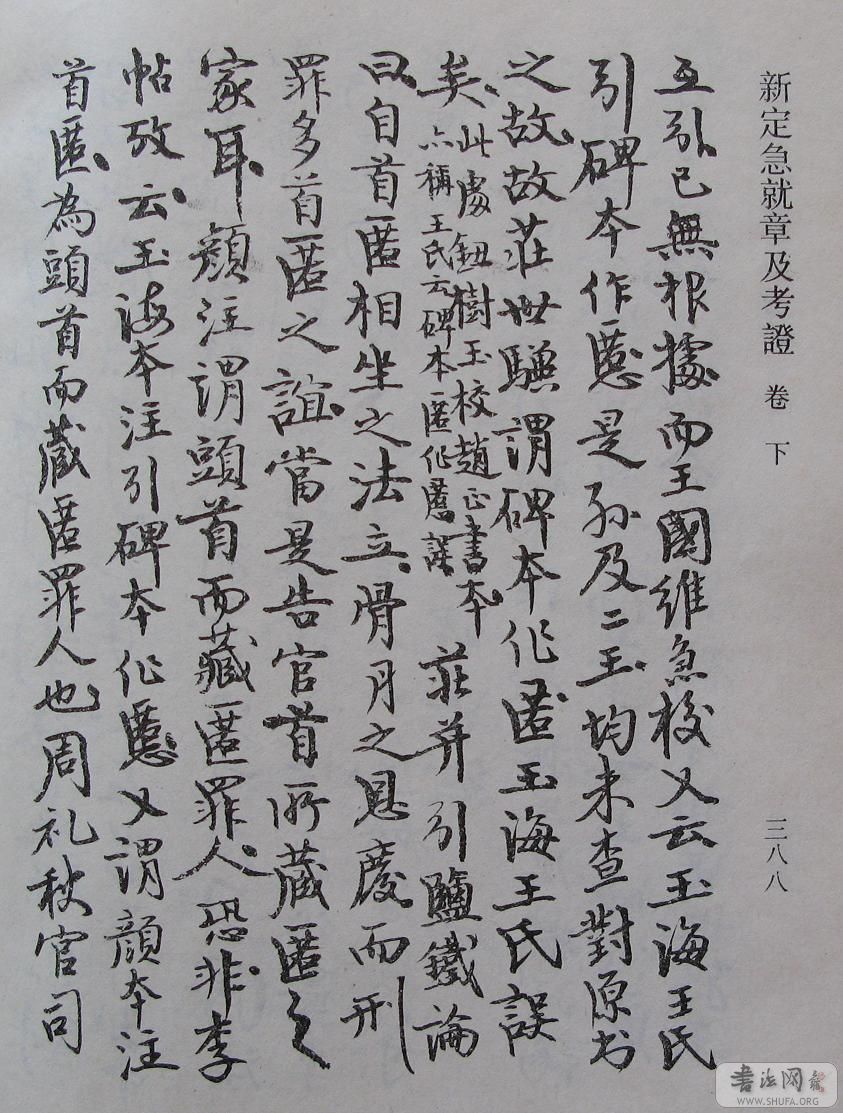 新定急就章及考證 卷下 三八八
互引已無根據而王國維急校又云玉海王氏
引碑本作慝是孙及二王均未查對原书
之故故莊世驥謂碑本作匿玉海王氏誤
矣此處鈕樹玉校趙正書本
亦稱王氏云碑本匿作慝誤
莊并引鹽鐵論
曰自首匿相坐之法立骨月之恩廢而刑
罪多首匿之誼當是告官首所藏匿之
家耳顏注謂頭首而藏匿罪人恐非李
帖攷云玉海本注引碑本作慝又謂顏本注
首匿為頭首而藏匿罪人也周礼秋官司
書法网
WWW.SHUFA.ORG